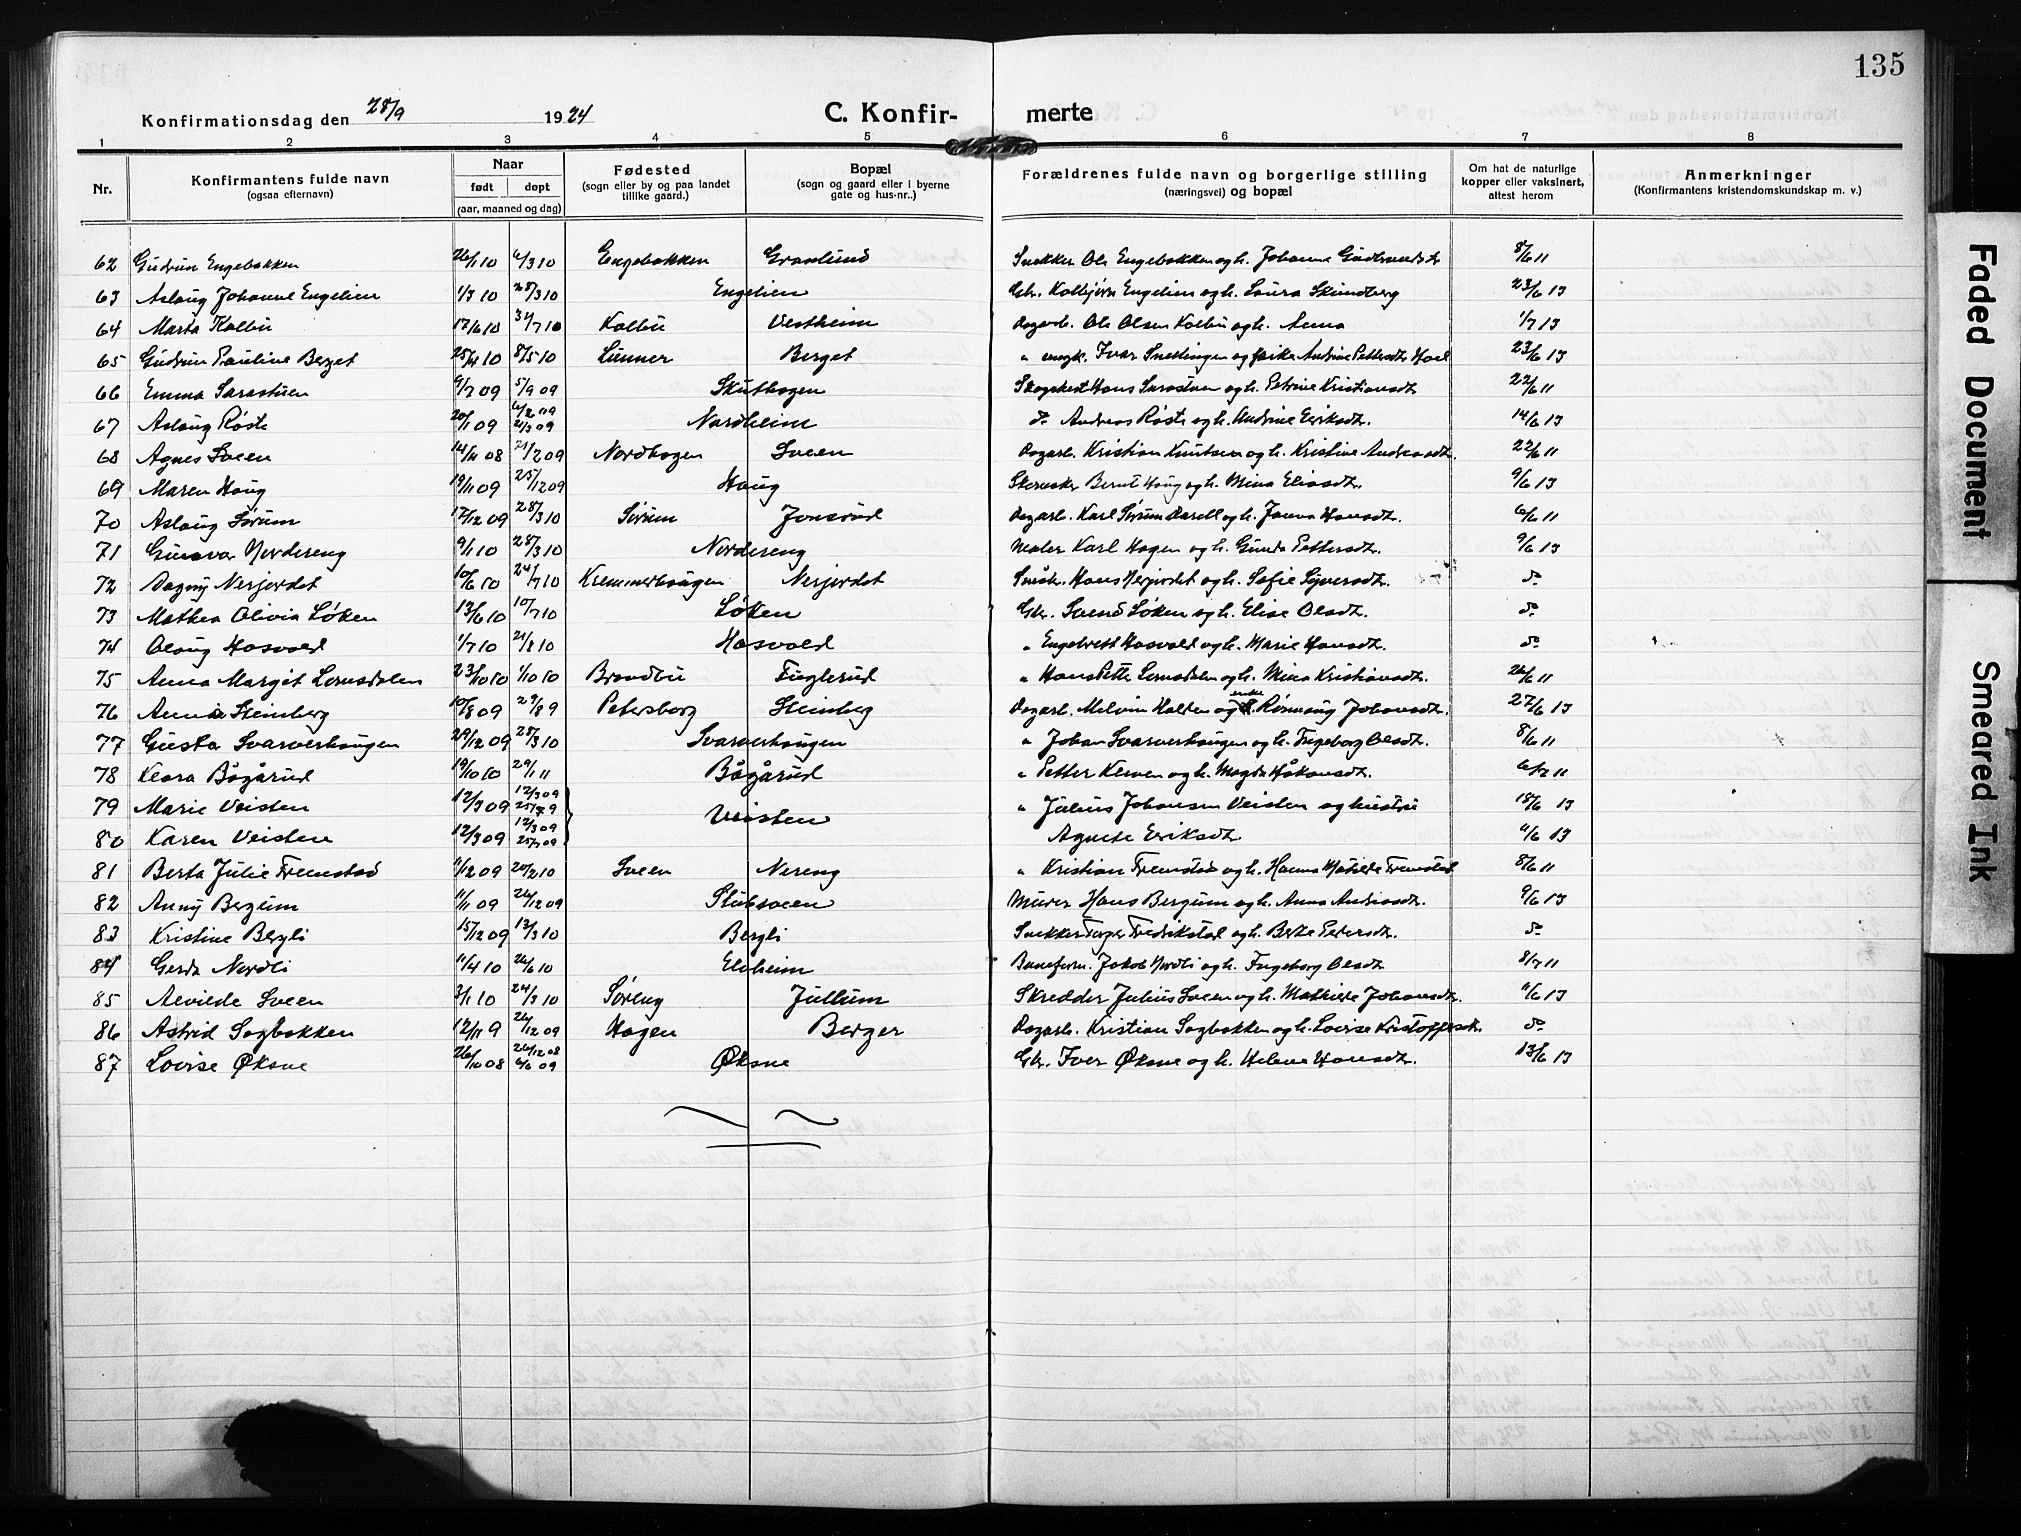 135
Konfirmationsdag den 28/9 1924 C. Konfirmerte
1 2 3 4 5 6 7 8
Nr. Konfirmantens fulde navn (ogsaa efternavn) Naar født døpt (aar, maaned og dag) Fødested (sogn eller by og paa landet tillike gaard.) Bopæl (sogn og gaard eller i byerne gate og hus-nr..) Forældrenes fulde navn og borgerlige stilling (næringsvei) og bopæl Om hat de naturlige kopper eller vaksinert, attest herom Anmerkninger (Konfirmantens kristendomskundskap m. v.)
62 Gudrun Engebakken 26/1 10 6/3 10 Engebakken Granlund Snekker Ole Engebakken og h. Johanne Gudbrandsdtr 8/6 11
63 Aslaug Johanne Engelien 1/3 10 28/3 10 Engelien Gbr. Kolbjørn Engelien og h. Laura Skundberg 23/6 13
64 Marta Kolbu 17/6 10 31/7 10 Kolbu Vestheim Dagarb. Ole Olsen Kolbu og h. Anna 1/7 13
65 Gudrun Pauline Berget 25/4 10 8/5 10 Lunner Berget " ungk. Ivar Snellingen og pike Andrine Pettersdtr Hoel 23/6 13
66 Emma Sarastuen 9/7 09 5/9 09 Skuthagen Skogvokt Hans Sarastuen og h. Petrine Kristiansdtr 22/6 11
67 Aslaug Røste 20/1 09 6/2 09 21/3 09 Nordheim do Andreas Røste og h. Andrine Eriksdtr. 14/6 13
68 Agnes Sveen 14/11 08 21/2 09 Nordhagen Sveen Dagarb. Kristian Knutsen og h. Kristine Andreasdtr. 22/6 11
69 Maren Haug 19/11 09 25/12 09 Haug Bernt Haug og h. Mina Eliasdtr. 9/6 13
70 Aslaug Sørum 17/12 09 28/3 10 Sørum Jonsrud Dagarb. Karl Sørum og h. Janna Hansdtr. 6/6 11
71 Gunvor Nordereng 9/1 10 28/3 10 Nordereng Maler Karl Hagen og h. Gunda Pettersdtr. 9/6 13
72 Dagny Nerjordet 10/6 10 24/7 10 Kremmerhaugen Nerjordet Småbr. Hans Nerjordet og h. Sofie Syversdtr. do
73 Mathea Olivia Løken 13/6 10 10/7 10 Løken Gbr. Svend Løken og h. Elise Olsdtr. do
74 Olaug Hasvold 1/7 10 21/8 10 Hasvold " Engebrett Hasvold og h. Marie Hansdtr. do
75 Anna Margit Lomsdalen 23/10 10 1/10 10 Brandbu Fuglerud " Hans Pette Lomsdalen og h. Mina Kristiansdtr. 26/6 11
76 Anna Steinberg 10/8 09 29/8 9 Petersborg Steinberg Dagarb. Melvin Halden og enke Rønnaug Johansdtr. 27/6 13
77 Gusta Svarverhaugen 29/12 09 28/3 10 Svarverhaugen " Johan Svarverhaugen og h. Ingeborg Olsdtr. 8/6 11
78 Klara Bågårud 19/10 10 29/1 11 Bågårud " Petter Kleven og h. Magda Håkonsdtr. 6/7 11
79 Marie Veisten 12/3 09 12/3 09 25/7 9 Veisten " Julius Johansen Veisten og hustru 18/6 13
80 Karen Veisten 12/3 09 12/3 09 25/7 09 Agnete Eriksdtr. 11/6 13
81 Berta Julie Fremstad 11/12 09 20/2 10 Sveen Nereng " Kristian Fremstad og h. Hanna Matilde Fremstad 8/6 11
82 Anny Bergum 11/11 09 26/12 09 Stubsveen Murer Hans Bergum og h. Anna Andreasdtr. 9/6 13
83 Kristine Bergli 15/12 09 13/3 10 Bergli Snekker Torger Fredrikstad og h. Berte Petersdtr. do
84 Gerda Nordli 11/4 10 26/6 10 Elvheim Baneform. Jakob Nordli og h. Ingeborg Olsdtr 8/7 11
85 Alvilde Sveen 3/1 10 24/3 10 Søreng Jullum Skredder Julius Sveen og h. Mathilde Johansdtr. 11/6 13
86 Astrid Sagbakken 12/11 9 26/12 09 Hagen Berger Dagarb. Kristian Sagbakken og h. Lovise Kristoffersdtr. do
87 Lovise Øksne 26/10 08 26/12 08 6/6 09 Øksne Gbr. Iver Øksne og h. Helene Hansdtr. 13/6 13
Faded Document
Smeared Ink